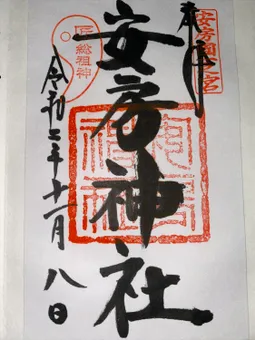 奉拝
安房国一之宮
安房神社
匠総祖神
令和七年十一月八日